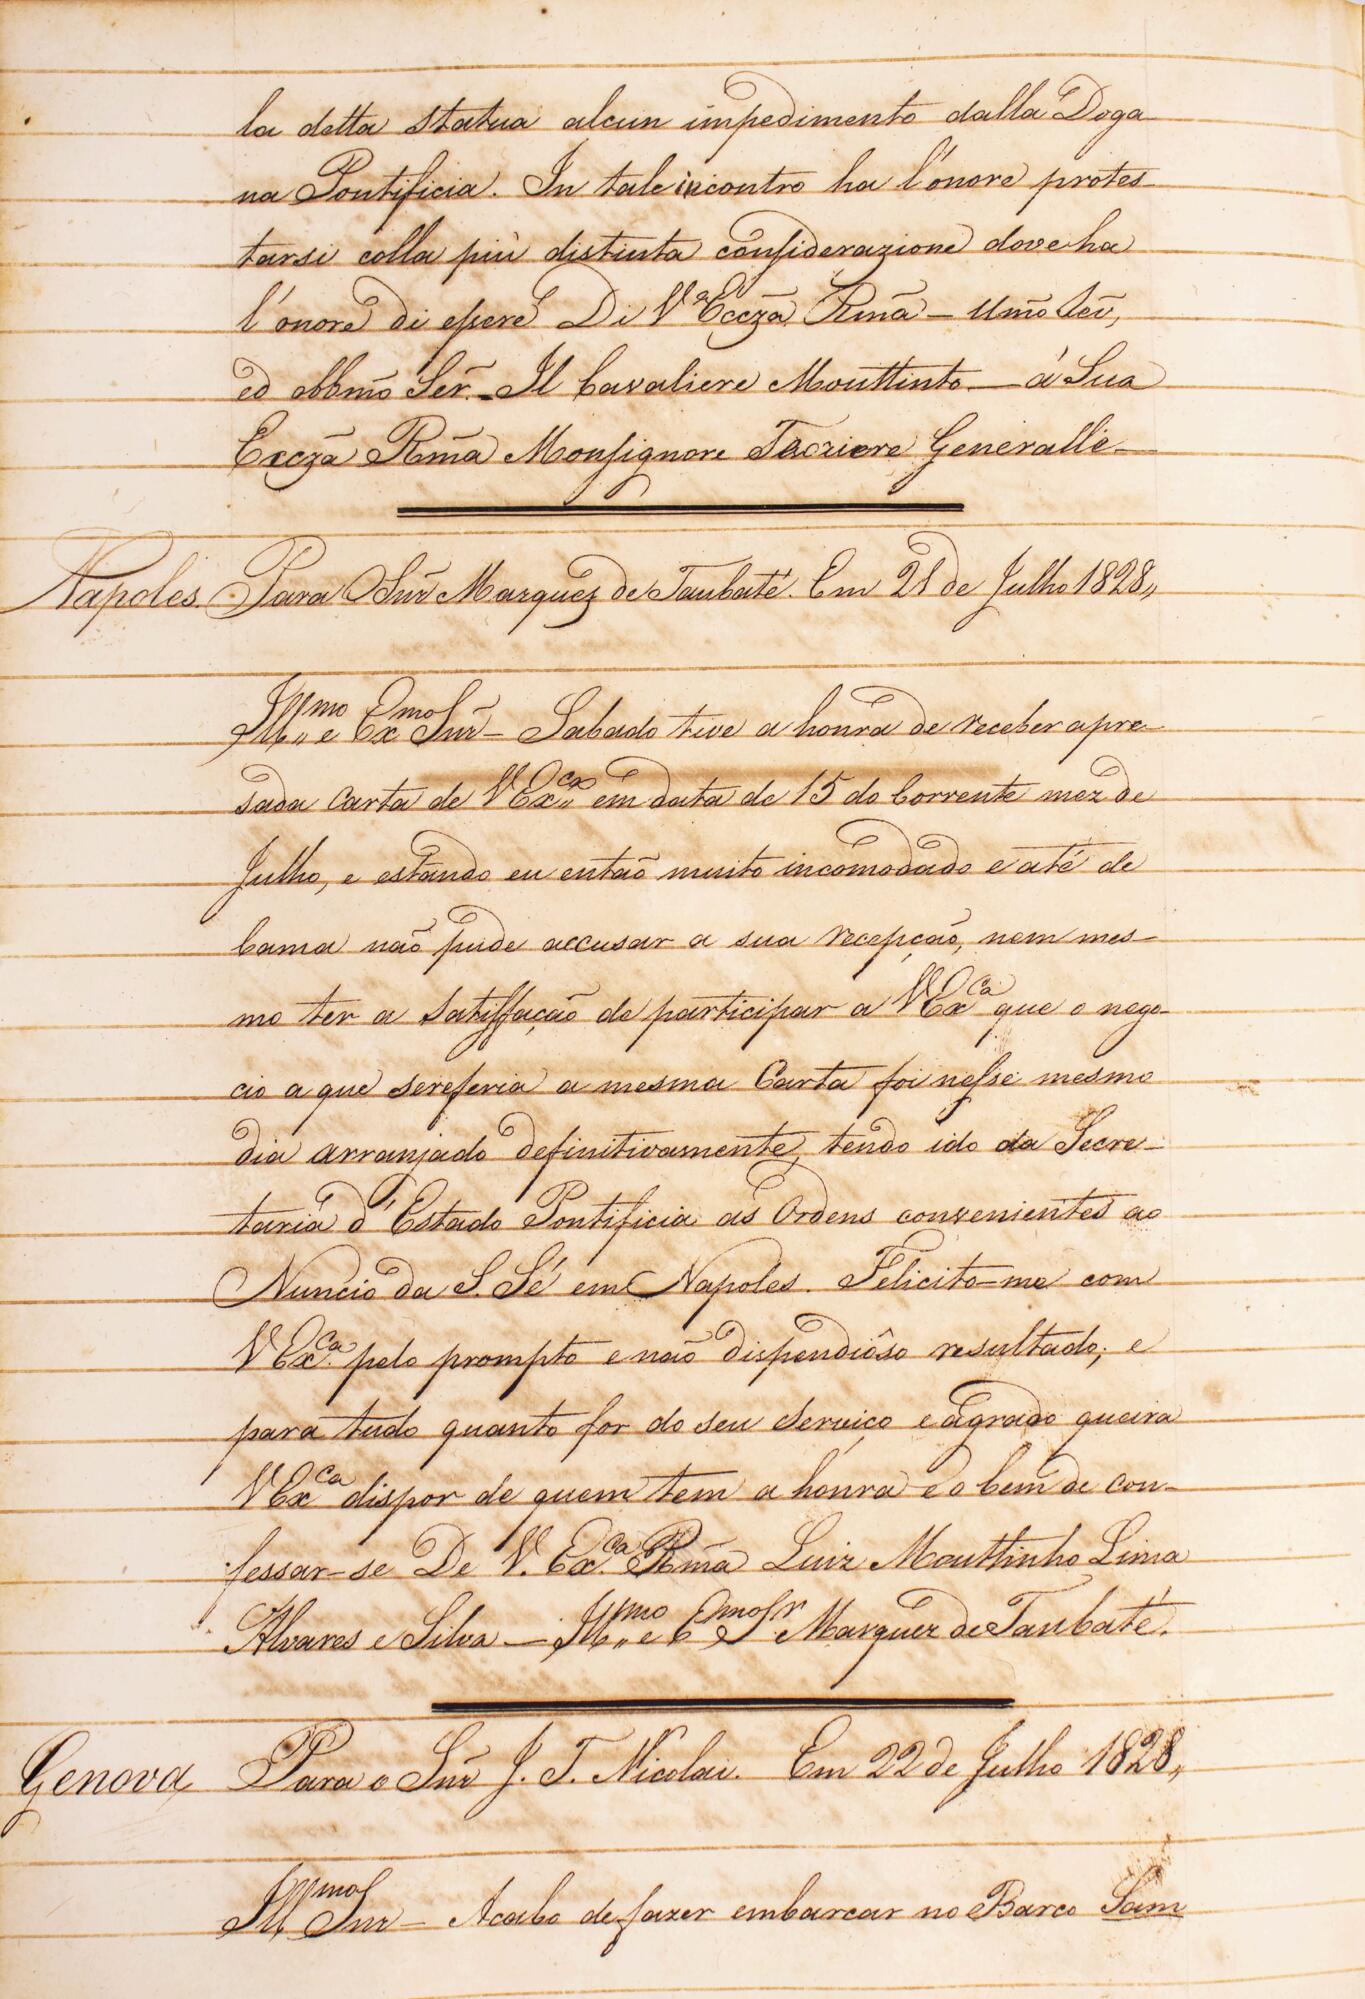 la detta statua alcun impedimento dalla Doga-
na Pontificia. In tale incontro ha l'onore protes-
tarsi colla più distinta considerazione dove ha
l'onore di essere Di Vª Ecczã Rmã — Umõ
ed obbmõ Ser. — Il Cavaliere Mouttinto — á Sua
Exczã Rmã Monsignore Tezoriere Generalle —
Napoles. Para Snr̃ Marquez de Taubaté. Em 21 de Julho 1828,,
Ill,,mo e Exmo Snr̃ — Sabado tive a honra de receber apre-
sada carta de V Ex,,cia em data de 15 do Corrente mez de
Julho, e estando eu então muito incomodado e até de
Cama não pude accusar a sua recepção, nem mes-
mo ter a satisfação de participar a V Exca que o nego-
cio a que sereferia a mesma Carta foi nesse mesmo
dia arranjado definitivamente, tendo ido da Secre-
taria d'Estado Pontificia as Ordens convenientes ao
Nuncio da S. Sé em Napoles. Felicito-me com
V Exca. pelo prompto e não dispendiôso resultado; e
para tudo quanto for do seu serviço e agrado queira
V Exca dispor de quem tem a honra e o bem de con-
fessar-se De V. Exca. Rmã Luiz Mouttinho Lima
Alvares e Silva — Ill,,mo e Emo Sr Marquez de Taubaté.
Genova Para o Snr̃ J. T. Nicolai. Em 22 de Julho 1828,,
Illmo Snr — Acabo de fazer embarcar no Barco Sam